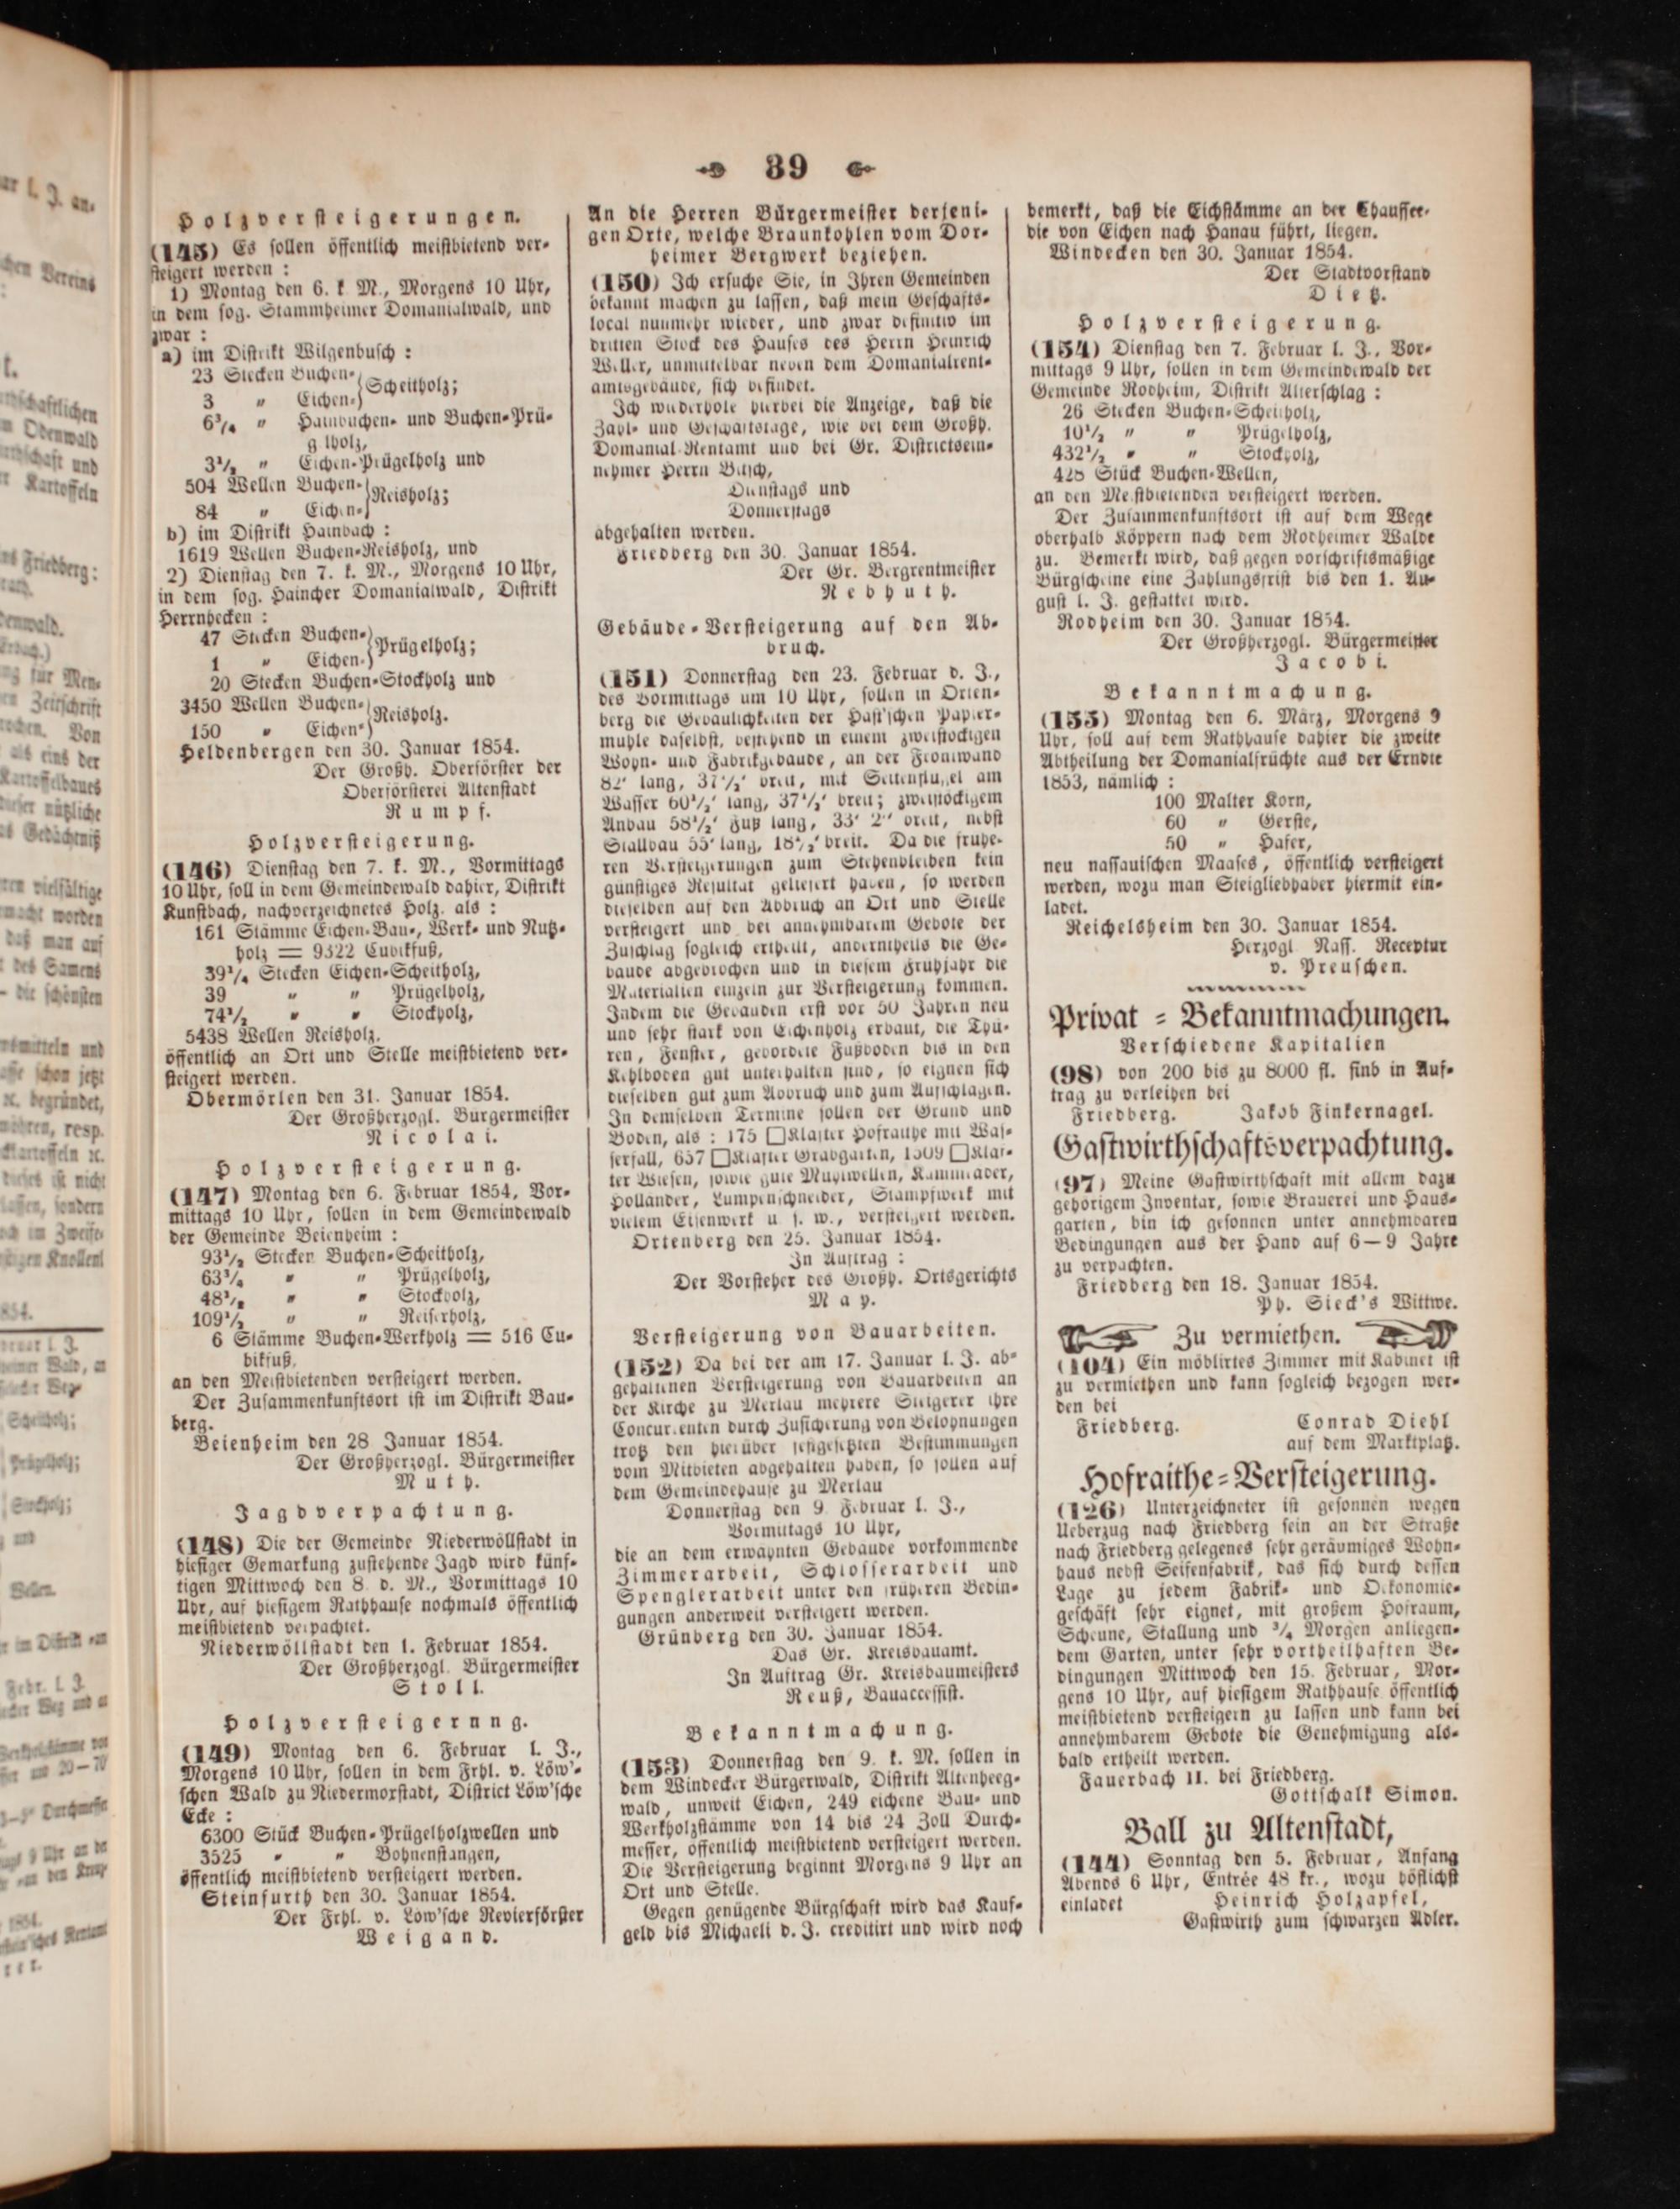 39
Holzversteigerungen.
(145) Es sollen öffentlich meistbietend ver-
steigert werden :
1) Montag den 6. k M., Morgens 10 Uhr,
in dem sog. Stammheimer Domanialwald, und
zwar :
a) im Distrikt Wilgenbusch :
23 Stecken Buchen-
3 " Eichen-} Scheitholz;
6³/₄ " Hainbuchen- und Buchen-Prü-
g lholz,
3½ " Eichen-Prügelholz und
504 Wellen Buchen-
84 " Eichen-} Reisholz;
b) im Distrikt Hainbach :
1619 Wellen Buchen-Reisholz, und
2) Dienstag den 7. k. M., Morgens 10 Uhr,
in dem sog. Haincher Domanialwald, Distrikt
Herrnhecken :
47 Stecken Buchen-
1 " Eichen-} Prügelholz;
20 Stecken Buchen-Stockholz und
3450 Wellen Buchen-
150 " Eichen-} Reisholz.
Heldenbergen den 30. Januar 1854.
Der Großh. Oberförster der
Oberförsterei Altenstadt
Rumpf.
Holzversteigerung.
(146) Dienstag den 7. k. M., Vormittags
10 Uhr, soll in dem Gemeindewald dahier, Distrikt
Kunstbach, nachverzeichnetes Holz, als :
161 Stämme Eichen-Bau-, Werk- und Nutz-
holz = 9322 Cubikfuß,
39¼ Stecken Eichen-Scheitholz,
39 " " Prügelholz,
74½ " " Stockholz,
5438 Wellen Reisholz,
öffentlich an Ort und Stelle meistbietend ver-
steigert werden.
Obermörlen den 31. Januar 1854.
Der Großherzogl. Burgermeister
Nicolai.
Holzversteigerung.
(147) Montag den 6. Februar 1854, Vor-
mittags 10 Uhr, sollen in dem Gemeindewald
der Gemeinde Beienheim :
93½ Stecken Buchen-Scheitholz,
63¾ " " Prügelholz,
48½ " " Stockholz,
109½ " " Reiserholz,
6 Stämme Buchen-Werkholz = 516 Cu-
bikfuß,
an den Meistbietenden versteigert werden.
Der Zusammenkunftsort ist im Distrikt Bau-
berg.
Beienheim den 28 Januar 1854.
Der Großherzogl. Bürgermeister
Muth.
Jagdverpachtung.
(148) Die der Gemeinde Niederwöllstadt in
hiesiger Gemarkung zustehende Jagd wird künf-
tigen Mittwoch den 8. d. M., Vormittags 10
Uhr, auf hiesigem Rathhause nochmals öffentlich
meistbietend verpachtet.
Niederwöllstadt den 1. Februar 1854.
Der Großherzogl. Bürgermeister
Stoll.
Holzversteigernng.
(149) Montag den 6. Februar l. J.,
Morgens 10 Uhr, sollen in dem Frhl. v. Löw'-
schen Wald zu Niedermorstadt, District Löw'sche
Ecke :
6300 Stück Buchen-Prügelholzwellen und
3525 " " Bohnenstangen,
öffentlich meistbietend versteigert werden.
Steinfurth den 30. Januar 1854.
Der Frhl. v. Löw'sche Revierförster
Weigand.
An die Herren Bürgermeister derjeni-
gen Orte, welche Braunkohlen vom Dor-
heimer Bergwerk beziehen.
(150) Ich ersuche Sie, in Ihren Gemeinden
bekannt machen zu lassen, daß mein Geschäfts-
local nunmehr wieder, und zwar definitiv im
dritten Stock des Hauses des Herrn Heinrich
Weller, unmittelbar neben dem Domanialrent-
amtsgebäude, sich befindet.
Ich wiederhole hierbei die Anzeige, daß die
Zahl- und Geschäftstage, wie bei dem Großh.
Domanial-Rentamt und bei Gr. Districtsein-
nehmer Herrn Bitsch,
Dienstags und
Donnerstags
abgehalten werden.
Friedberg den 30. Januar 1854.
Der Gr. Bergrentmeister
Rebhuth.
Gebäude-Versteigerung auf den Ab-
bruch.
(151) Donnerstag den 23. Februar d. J.,
des Vormittags um 10 Uhr, sollen in Orten-
berg die Gebäulichkeiten der Hast'schen Papier-
mühle daselbst, bestehend in einem zweistöckigen
Wohn- und Fabrikgebäude, an der Frontwand
82' lang, 37½' breit, mit Seitenflügel am
Wasser 60½' lang, 37½' breit; zweistöckigem
Anbau 58½' Fuß lang, 33' 2" breit, nebst
Stallbau 55' lang, 18½' breit. Da die frühe-
ren Versteigerungen zum Stehenbleiben kein
günstiges Resultat geliefert haben, so werden
dieselben auf den Abbruch an Ort und Stelle
versteigert und bei annehmbarem Gebote der
Zuschlag sogleich ertheilt, anderntheils die Ge-
bäude abgebrochen und in diesem Frühjahr die
Materialien einzeln zur Versteigerung kommen.
Indem die Gebäuden erst vor 50 Jahren neu
und sehr stark von Eichenholz erbaut, die Thü-
ren, Fenster, gebordete Fußböden bis in den
Kehlboden gut unterhalten sind, so eignen sich
dieselben gut zum Abbruch und zum Aufschlagen.
In demselben Termine sollen der Grund und
Boden, als : 175 □Klafter Hofraithe mit Was-
serfall, 657 □Klafter Grabgarten, 1509 □Klaf-
ter Wiesen, sowie gute Mühlwellen, Kammräder,
Holländer, Lumpenschneider, Stampfwerk mit
vielem Eisenwerk u. s. w., versteigert werden.
Ortenberg den 25. Januar 1854.
In Auftrag :
Der Vorsteher des Großh. Ortsgerichts
May.
Versteigerung von Bauarbeiten.
(152) Da bei der am 17. Januar l. J. ab-
gehaltenen Versteigerung von Bauarbeiten an
der Kirche zu Merlau mehrere Steigerer ihre
Concurrenten durch Zusicherung von Belohnungen
trotz den hierüber festgesetzten Bestimmungen
vom Mitbieten abgehalten haben, so sollen auf
dem Gemeindehause zu Merlau
Donnerstag den 9. Februar l. J.,
Vormittags 10 Uhr,
die an dem erwähnten Gebäude vorkommende
Zimmerarbeit, Schlosserarbeit und
Spenglerarbeit unter den früheren Bedin-
gungen anderweit versteigert werden.
Grünberg den 30. Januar 1854.
Das Gr. Kreisbauamt.
In Auftrag Gr. Kreisbaumeisters
Reuß, Bauaccessist.
Bekanntmachung.
(153) Donnerstag den 9. k. M. sollen in
dem Windecker Bürgerwald, Distrikt Altenheeg-
wald, unweit Eichen, 249 eichene Bau- und
Werkholzstämme von 14 bis 24 Zoll Durch-
messer, öffentlich meistbietend versteigert werden.
Die Versteigerung beginnt Morgens 9 Uhr an
Ort und Stelle.
Gegen genügende Bürgschaft wird das Kauf-
geld bis Michaeli d. J. creditirt und wird noch
bemerkt, daß die Eichstämme an der Chaussee,
die von Eichen nach Hanau führt, liegen.
Windecken den 30. Januar 1854.
Der Stadtvorstand
Dietz.
Holzversteigerung.
(154) Dienstag den 7. Februar l. J., Vor-
mittags 9 Uhr, sollen in dem Gemeindewald der
Gemeinde Rodheim, Distrikt Alterschlag :
26 Stecken Buchen-Scheitholz,
10½ " " Prügelholz,
432½ " " Stockholz,
428 Stück Buchen-Wellen,
an den Meistbietenden versteigert werden.
Der Zusammenkunftsort ist auf dem Wege
oberhalb Köppern nach dem Rodheimer Walde
zu. Bemerkt wird, daß gegen vorschriftsmäßige
Bürgscheine eine Zahlungsfrist bis den 1. Au-
gust l. J. gestattet wird.
Rodheim den 30. Januar 1854.
Der Großherzogl. Bürgermeister
Jacobi.
Bekanntmachung.
(155) Montag den 6. März, Morgens 9
Uhr, soll auf dem Rathhause dahier die zweite
Abtheilung der Domanialfrüchte aus der Erndte
1853, nämlich :
100 Malter Korn,
60 " Gerste,
50 " Hafer,
neu nassauischen Maases, öffentlich versteigert
werden, wozu man Steigliebhaber hiermit ein-
ladet.
Reichelsheim den 30. Januar 1854.
Herzogl Nass. Receptur
v. Preuschen.
Privat-Bekanntmachungen.
Verschiedene Kapitalien
(98) von 200 bis zu 8000 fl. sind in Auf-
trag zu verleihen bei
Friedberg. Jakob Finkernagel.
Gastwirthschaftsverpachtung.
(97) Meine Gastwirthschaft mit allem dazu
gehörigem Inventar, sowie Brauerei und Haus-
garten, bin ich gesonnen unter annehmbaren
Bedingungen aus der Hand auf 6—9 Jahre
zu verpachten.
Friedberg den 18. Januar 1854.
Ph. Sieck's Wittwe.
Zu vermiethen.
(104) Ein möblirtes Zimmer mit Kabinet ist
zu vermiethen und kann sogleich bezogen wer-
den bei
Friedberg. Conrad Diehl
auf dem Marktplatz.
Hofraithe-Versteigerung.
(126) Unterzeichneter ist gesonnen wegen
Ueberzug nach Friedberg sein an der Straße
nach Friedberg gelegenes sehr geräumiges Wohn-
haus nebst Seifenfabrik, das sich durch dessen
Lage zu jedem Fabrik- und Oekonomie-
geschäft sehr eignet, mit großem Hofraum,
Scheune, Stallung und ¾ Morgen anliegen-
dem Garten, unter sehr vortheilhaften Be-
dingungen Mittwoch den 15. Februar, Mor-
gens 10 Uhr, auf hiesigem Rathhause öffentlich
meistbietend versteigern zu lassen und kann bei
annehmbarem Gebote die Genehmigung als-
bald ertheilt werden.
Fauerbach II. bei Friedberg.
Gottschalk Simon.
Ball zu Altenstadt,
(144) Sonntag den 5. Februar, Anfang
Abends 6 Uhr, Entrée 48 kr., wozu höflichst
einladet Heinrich Holzapfel,
Gastwirth zum schwarzen Adler.